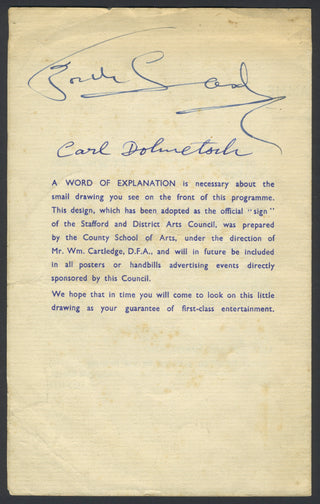 Carl Dolmetsch
A WORD OF EXPLANATION is necessary about the
small drawing you see on the front of this programme.
This design, which has been adopted as the official "sign"
of the Stafford and District Arts Council, was prepared
by the County School of Arts, under the direction of
Mr. Wm. Cartledge, D.F.A., and will in future be included
in all posters or handbills advertising events directly
sponsored by this Council.
We hope that in time you will come to look on this little
drawing as your guarantee of first-class entertainment.